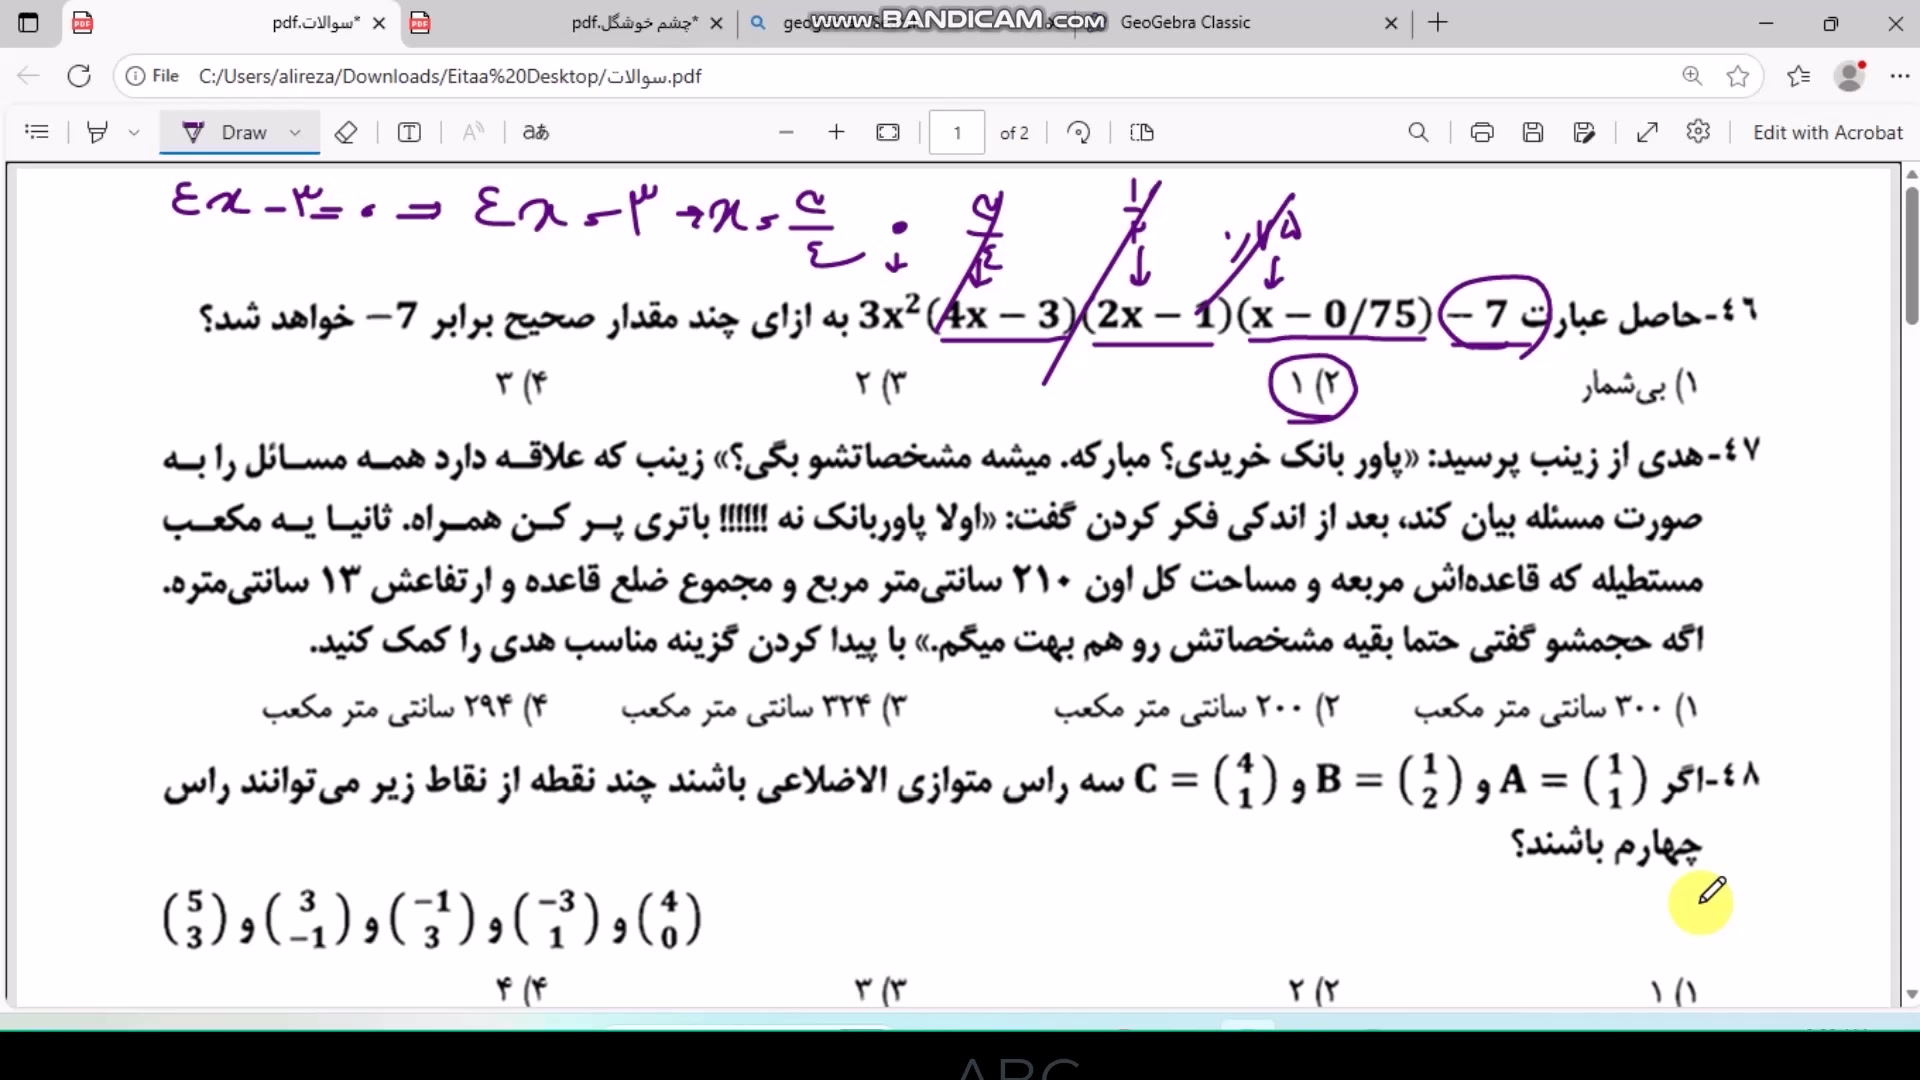 سوالات.pdf*
چشم خوشگل.pdf*
www.BANDICAM.com
GeoGebra Classic
File C:/Users/alireza/Downloads/Eitaa%20Desktop/سوالات.pdf
Draw
aあ
1 of 2
Edit with Acrobat
٤x - ۳ = ۰ ⇒ ٤x = ۳ → x = ۳/٤
٤٦-حاصل عبارت 3x²(4x − 3)(2x − 1)(x − 0/75) − 7 به ازای چند مقدار صحیح برابر 7− خواهد شد؟
۱) بی‌شمار ۲) ۱ ۳) ۲ ۴) ۳
٤٧-هدی از زینب پرسید: «پاور بانک خریدی؟ مبارکه. میشه مشخصاتشو بگی؟» زینب که علاقه دارد همه مسائل را به
صورت مسئله بیان کند، بعد از اندکی فکر کردن گفت: «اولا پاوربانک نه !!!!!! باتری پر کن همراه. ثانیا یه مکعب
مستطیله که قاعده‌اش مربعه و مساحت کل اون ۲۱۰ سانتی‌متر مربع و مجموع ضلع قاعده و ارتفاعش ۱۳ سانتی‌متره.
اگه حجمشو گفتی حتما بقیه مشخصاتش رو هم بهت میگم.» با پیدا کردن گزینه مناسب هدی را کمک کنید.
۱) ۳۰۰ سانتی متر مکعب ۲) ۲۰۰ سانتی متر مکعب ۳) ۳۲۴ سانتی متر مکعب ۴) ۲۹۴ سانتی متر مکعب
٤٨-اگر A = (1 1) و B = (1 2) و C = (4 1) سه راس متوازی الاضلاعی باشند چند نقطه از نقاط زیر می‌توانند راس
چهارم باشند؟
(4 0) و (−3 1) و (−1 3) و (3 −1) و (5 3)
۱) ۱ ۲) ۲ ۳) ۳ ۴) ۴